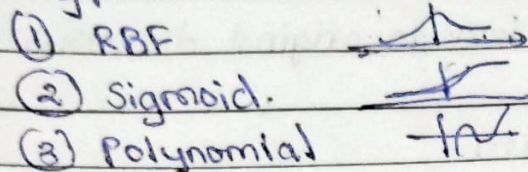 ① RBF
② Sigmoid.
③ Polynomial